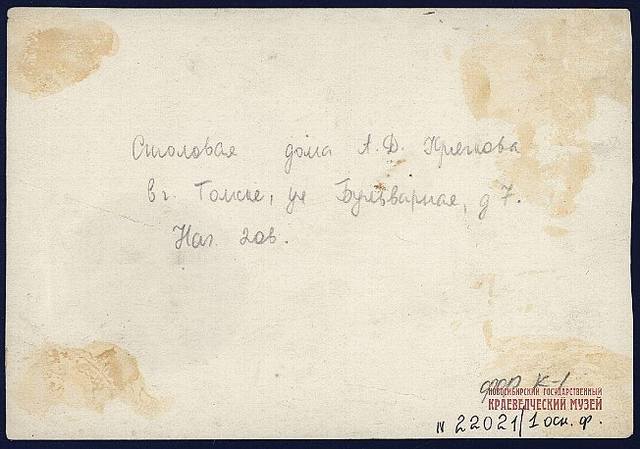 Столовая дома А.Д. Крячкова
в г. Томске, ул Бульварная, д 7.
Нач. 20в.
ффп К-1
НОВОСИБИРСКИЙ ГОСУДАРСТВЕННЫЙ
КРАЕВЕДЧЕСКИЙ МУЗЕЙ
N 22021/1 осн. ф.